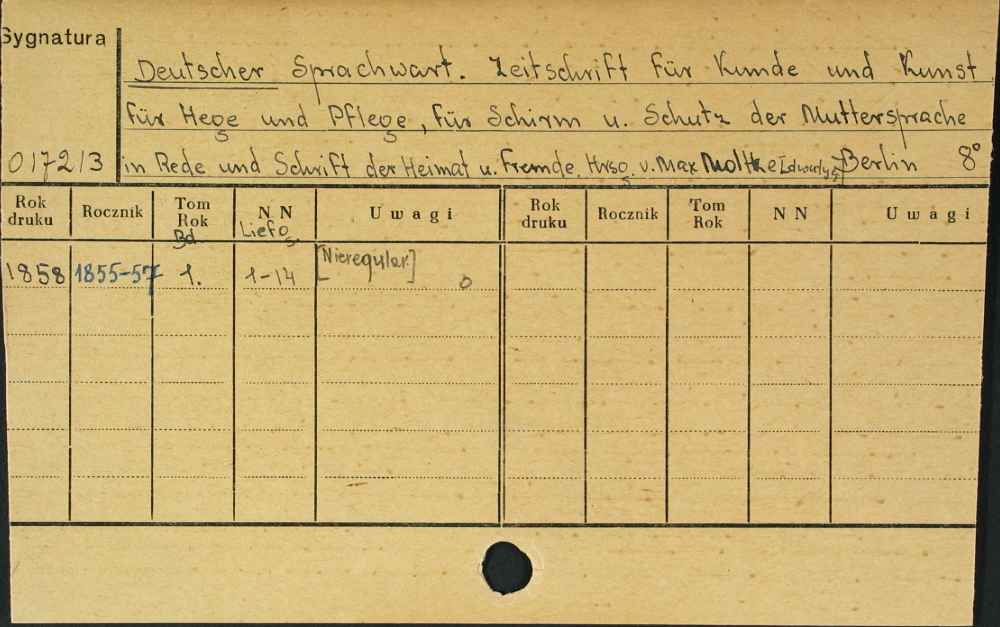 Sygnatura
Deutscher Sprachwart. Zeitschrift für Kunde und Kunst
für Hege und Pflege, für Schirm u. Schutz der Muttersprache
0172/3 in Rede und Schrift der Heimat u. Fremde. Hrsg. v. Max Moltke Berlin 8°
Rok druku Rocznik Tom Rok NN Uwagi Rok druku Rocznik Tom Rok NN Uwagi
Bd Liefg
1858 1855-57 1. 1-14 [Nieregular.] 0